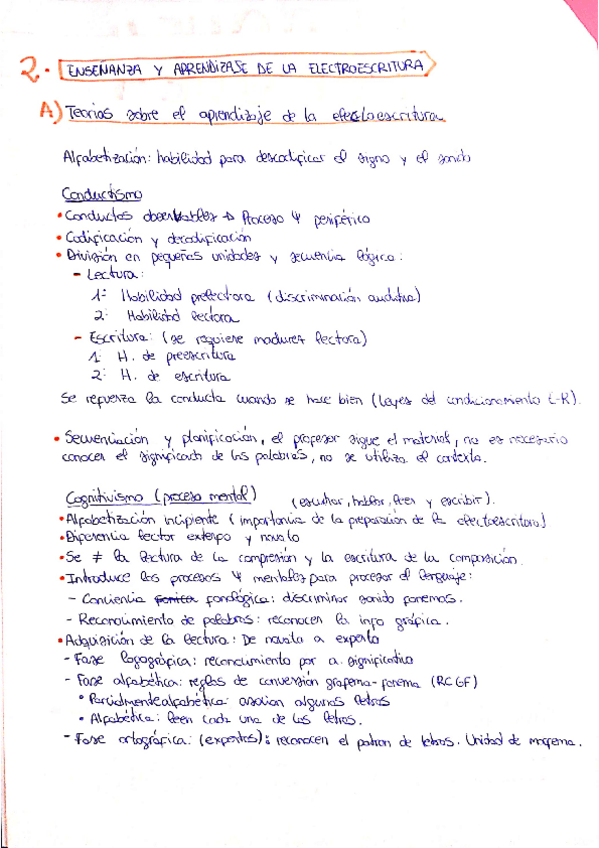 2. ENSEÑANZA Y APRENDIZAJE DE LA ELECTROESCRITURA
A) Teorías sobre el aprendizaje de la efectoescritura
Alfabetización: habilidad para descodificar el signo y el sonido
Conductismo
• Conductas observables → Proceso Ψ periférico
• Codificación y decodificación
• División en pequeñas unidades y secuencia lógica:
- Lectura:
1: Habilidad prelectora (discriminación auditiva)
2: Habilidad lectora
- Escritura: (se requiere madurez lectora)
1: H. de preescritura
2: H. de escritura
Se refuerza la conducta cuando se hace bien (leyes del condicionamiento E-R).
• Secuenciación y planificación, el profesor sigue el material, no es necesario
conocer el significado de las palabras, no se utiliza el contexto.
Cognitivismo (proceso mental) (escuchar, hablar, leer y escribir).
• Alfabetización incipiente (importancia de la preparación de la efectoescritora)
• Diferencia lector experto y novato
• Se ≠ la lectura de la compresión y la escritura de la composición.
• Introduce los procesos Ψ mentales para procesar el lenguaje:
- Conciencia fonica fonológica: discriminar sonido fonemas.
- Reconocimiento de palabras: reconocen la info gráfica.
• Adquisición de la lectura: De novato a experto
- Fase logográfica: reconocimiento por a. significativo
- Fase alfabética: reglas de conversión grafema-fonema (RCGF)
• Parcialmente alfabética: asocian algunas letras
• Alfabética: leen cada una de las letras.
- Fase ortográfica: (expertos): reconocen el patron de letras. Unidad de morfema.